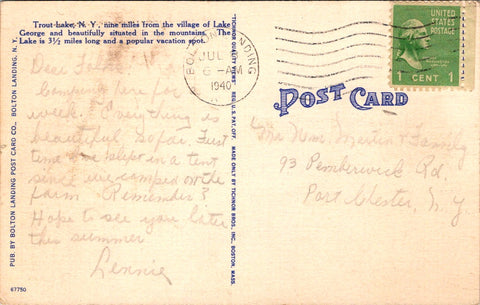 Trout Lake, N. Y., nine miles from the village of Lake
George and beautifully situated in the mountains. The
Lake is 3½ miles long and a popular vacation spot.
BOLTON LANDING
JUL
6 - AM
1940
UNITED STATES
POSTAGE
1 CENT 1
POST CARD
Dear Folks:
Camping here for
week. Everything is
beautiful so far. First
time we slept in a tent
since we camped on the
farm. Remember?
Hope to see you later
this summer
Lennie
Mr. Wm. Martin & Family
93 Pemberwick Rd.
Port Chester, N. Y.
PUB. BY BOLTON LANDING POST CARD CO., BOLTON LANDING, N. Y.
"TICHNOR QUALITY VIEWS" REG. U. S. PAT. OFF. MADE ONLY BY TICHNOR BROS., INC., BOSTON, MASS.
67750